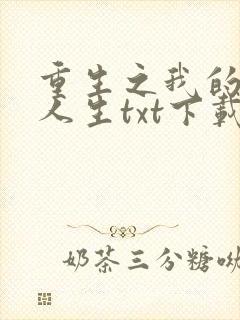 重生之我的
人生txt下载
奶茶三分糖呦